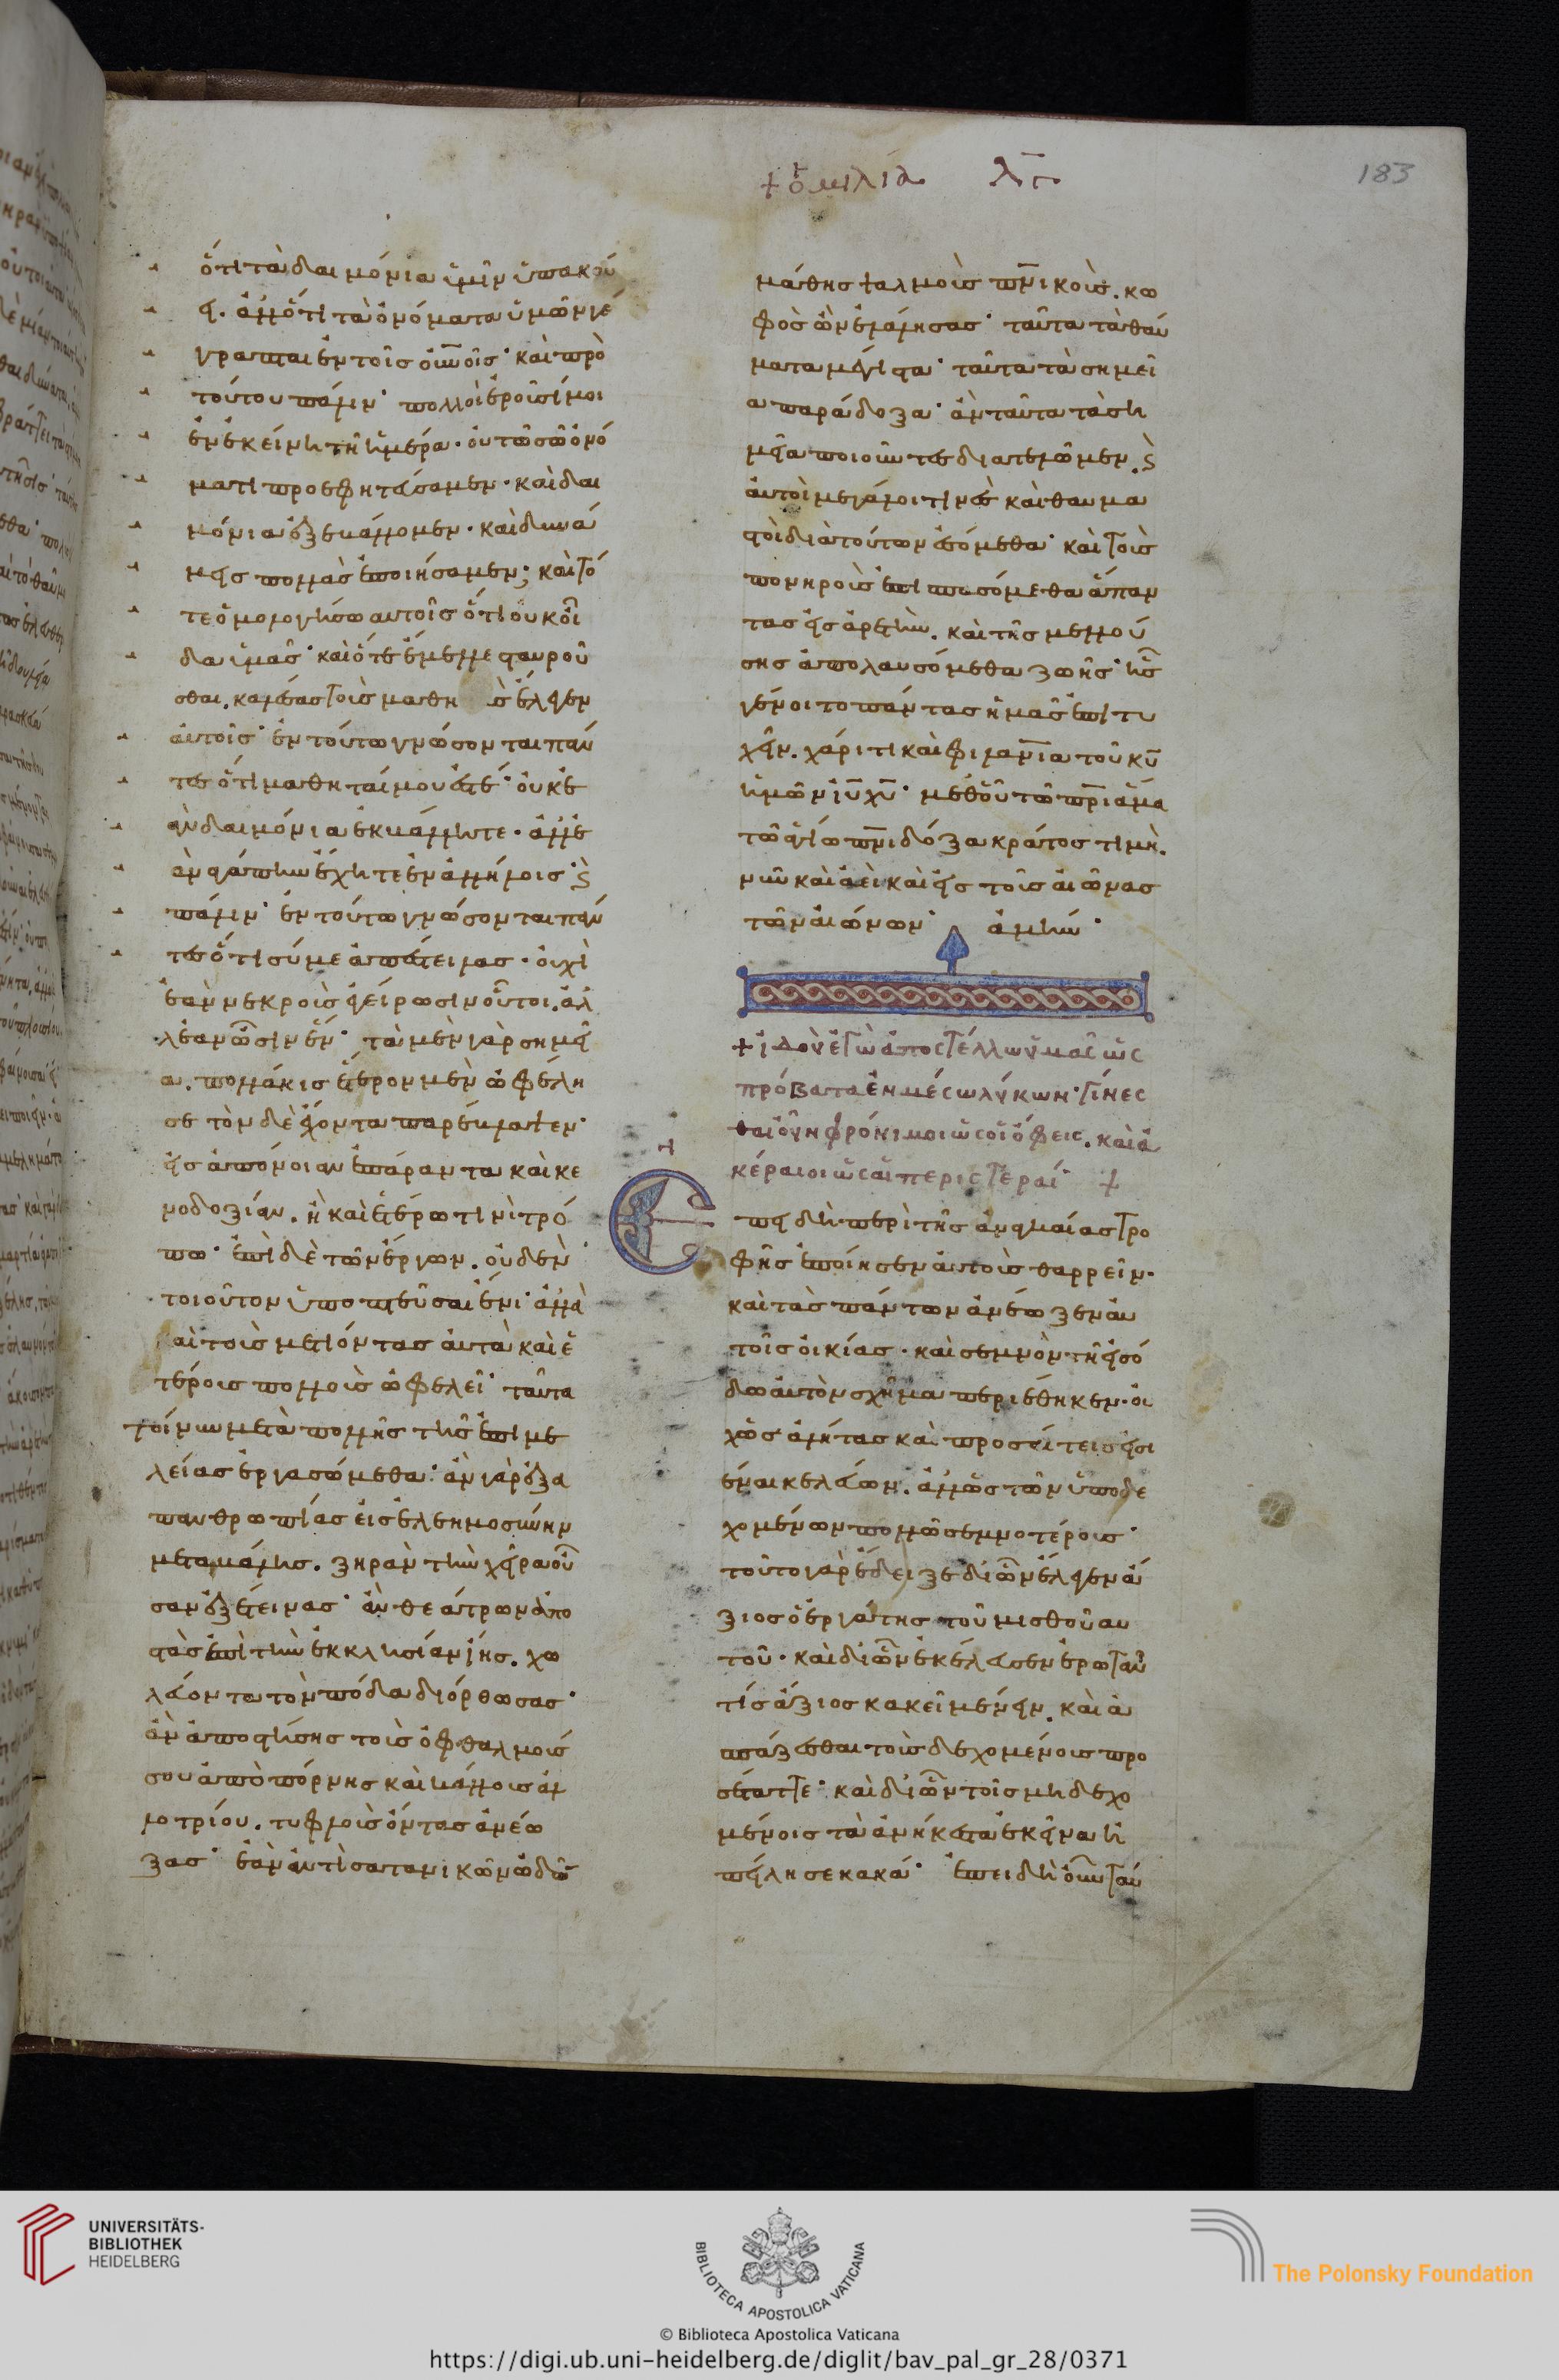 + ὁμιλία λγ
183
ὅτι τὰ δαιμόνια ὑμῖν ὑπακού
ει. ἀλλ' ὅτι τὰ ὀνόματα ὑμῶν γέ
γραπται ἐν τοῖς οὐνοῖς· καὶ πρὸ
τούτου πάλιν· πολλοὶ ἐροῦσί μοι
ἐν ἐκείνη τῆ ἡμέρα. οὐ τῶ σῶ ὀνό
ματι προεφητεύσαμεν. καὶ δαι
μόνια ἐξεβάλλομεν. καὶ δυνά
μεις πολλὰς ἐποιήσαμεν; καὶ τό
τε ὁμολογήσω αὐτοῖς ὅτι οὐκ οἶ
δα ὑμᾶς· καὶ ὅτε ἔμελλε σταυροῦ
σθαι. καλέσας τοὺς μαθη ὰς ἔλεγεν
αὐτοῖς· ἐν τούτω γνώσονται πάν
τες ὅτι μαθηταί μου ἐστέ· οὐκ ἐ
ὰν δαιμόνια ἐκβάλλητε. ἀλλ' ἐ
ὰν ἀγάπην ἔχητε ἐν ἀλλήλοις· ϗ
πάλιν· ἐν τούτω γνώσονται πάν
τες ὅτι σύ με ἀπέστειλας. οὐχὶ
ἐὰν νεκροὺς ἐγείρωσιν οὗτοι. ἀλ
λ' ἐὰν ὦσιν ἕν· τὰ μὲν γὰρ σημεῖ
α. πολλάκις ἕτερον μὲν ὠφέλη
σε τὸν δὲ ἔχοντα παρέβλαψεν
εἰς ἀπόνοιαν ἐπάραντα καὶ κε
νοδοξίαν. ἢ καὶ ἑτέρω τινὶ τρό
πω· ἐπὶ δὲ τῶν ἔργων. οὐδὲν
τοιοῦτον ὑποπτεῦσαι ἔνι· ἀλλὰ
αὶ τοὺς μετιόντας αὐτὰ καὶ ἑ
τέρους πολλοὺς ὠφελεῖ· ταῦτα
τοίνυν μετὰ πολλῆς τῆς ἐπιμε
λείας ἐργασώμεθα· ἂν γὰρ ἐξ ἀ
πανθρωπίας εἰς ἐλεημοσύνην
μεταβάλης. ξηρὰν τὴν χεῖρα οὖ
σαν ἐξέτεινας· ἂν θεάτρων ἀπο
στὰς ἐπὶ τὴν ἐκκλησίαν ἴης. χω
λεύοντα τὸν πόδα διόρθωσας·
ἂν ἀποστήσης τοὺς ὀφθαλμούς
σου ἀπὸ πόρνης καὶ κάλλους ἀλ
λοτρίου. τυφλοὺς ὄντας ἀνέω
ξας· ἐὰν ἀντὶ σατανικῶν ὠδῶν
μάθης ψαλμοὺς πνικούς. κω
φὸς ὢν ἐλάλησας· ταῦτα τὰ θαύ
ματα μέγιστα· ταῦτα τὰ σημεῖ
α παράδοξα· ἂν ταῦτα τὰ ση
μεῖα ποιοῦντες διατελῶμεν. ϗ
αὐτοὶ μεγάλοι τινὲς καὶ θαυμα
στοὶ διὰ τούτων ἐσόμεθα· καὶ τοὺς
πονηροὺς ἐπισπασόμεθα ἅπαν
τας εἰς ἀρετήν. καὶ τῆς μελλού
σης ἀπολαυσόμεθα ζωῆς· ἧς
γένοιτο πάντας ἡμᾶς ἐπιτυ
χεῖν. χάριτι καὶ φιλανία τοῦ κυ
ἡμῶν ιυ χυ· μεθ' οὗ τῶ πρι ἅμα
τῶ ἁγίω πνι δόξα κράτος τιμὴ.
νῦν καὶ ἀεὶ καὶ εἰς τοὺς αἰῶνας
τῶν αἰώνων· ἀμήν·
+ ἰδοὺ ἐγὼ ἀποστέλλω ὑμᾶς ὡς
πρόβατα ἐν μέσω λύκων· γίνες
θαι οὖν φρόνιμοι ὡς οἱ ὄφεις. καὶ ἀ
κέραιοι ὡς αἱ περιστεραί· +
Επειδὴ περὶ τῆς ἀναγκαίας τρο
φῆς ἐποίησεν αὐτοὺς θαρρεῖν.
καὶ τὰς πάντων ἀνέωξεν αὐ
τοῖς οἰκίας. καὶ σεμνὸν τῆ εἰσό
δω αὐτῶν σχῆμα περιέθηκεν. οὐ
χ ὡς ἀλήτας καὶ προσαίτεις εἰσι
έναι κελεύων. ἀλλ' ὡς τῶν ὑποδε
χομένων πολλῶ σεμνοτέρους·
τοῦτο γὰρ ἔδειξε δι' ὧν ἔλεγεν ἄ
ξιος ὁ ἐργάτης τοῦ μισθοῦ αυ
τοῦ. καὶ δι' ὧν ἐκέλευσεν ἐρωτᾶν
τίς ἄξιος κακεῖ μένειν. καὶ ἀ
σπάζεσθαι τοὺς δεχομένους προ
σέταττε· καὶ δι' ὧν τοῖς μὴ δεχο
μένοις τὰ ἀνήκεστα ἐκεῖνα ἠ
πείλησε κακά· Ἐπειδὴ οὖν ταύ
UNIVERSITÄTS-
BIBLIOTHEK
HEIDELBERG
BIBLIOTECA APOSTOLICA VATICANA
The Polonsky Foundation
© Biblioteca Apostolica Vaticana
https://digi.ub.uni-heidelberg.de/diglit/bav_pal_gr_28/0371